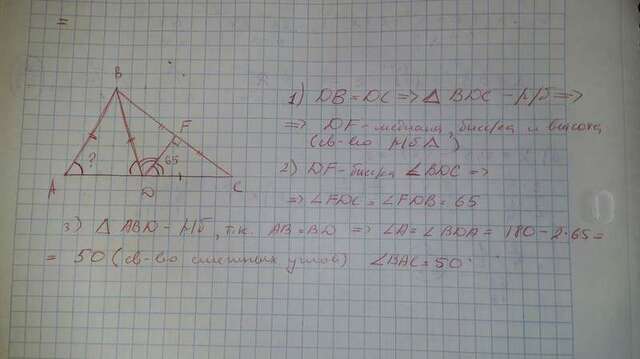 =
B
F
?
65
A
D
C
1) DB=DC => △ BDC - р/б =>
=> DF-медиана, бис/са и высота
(св-во р/б △)
2) DF-бис/са ∠BDC =>
=> ∠FDC = ∠FDB = 65
3) △ ABD - р/б, т.к. AB=BD => ∠A = ∠BDA = 180-2·65 =
= 50 (св-во смежных углов) ∠BAC = 50°